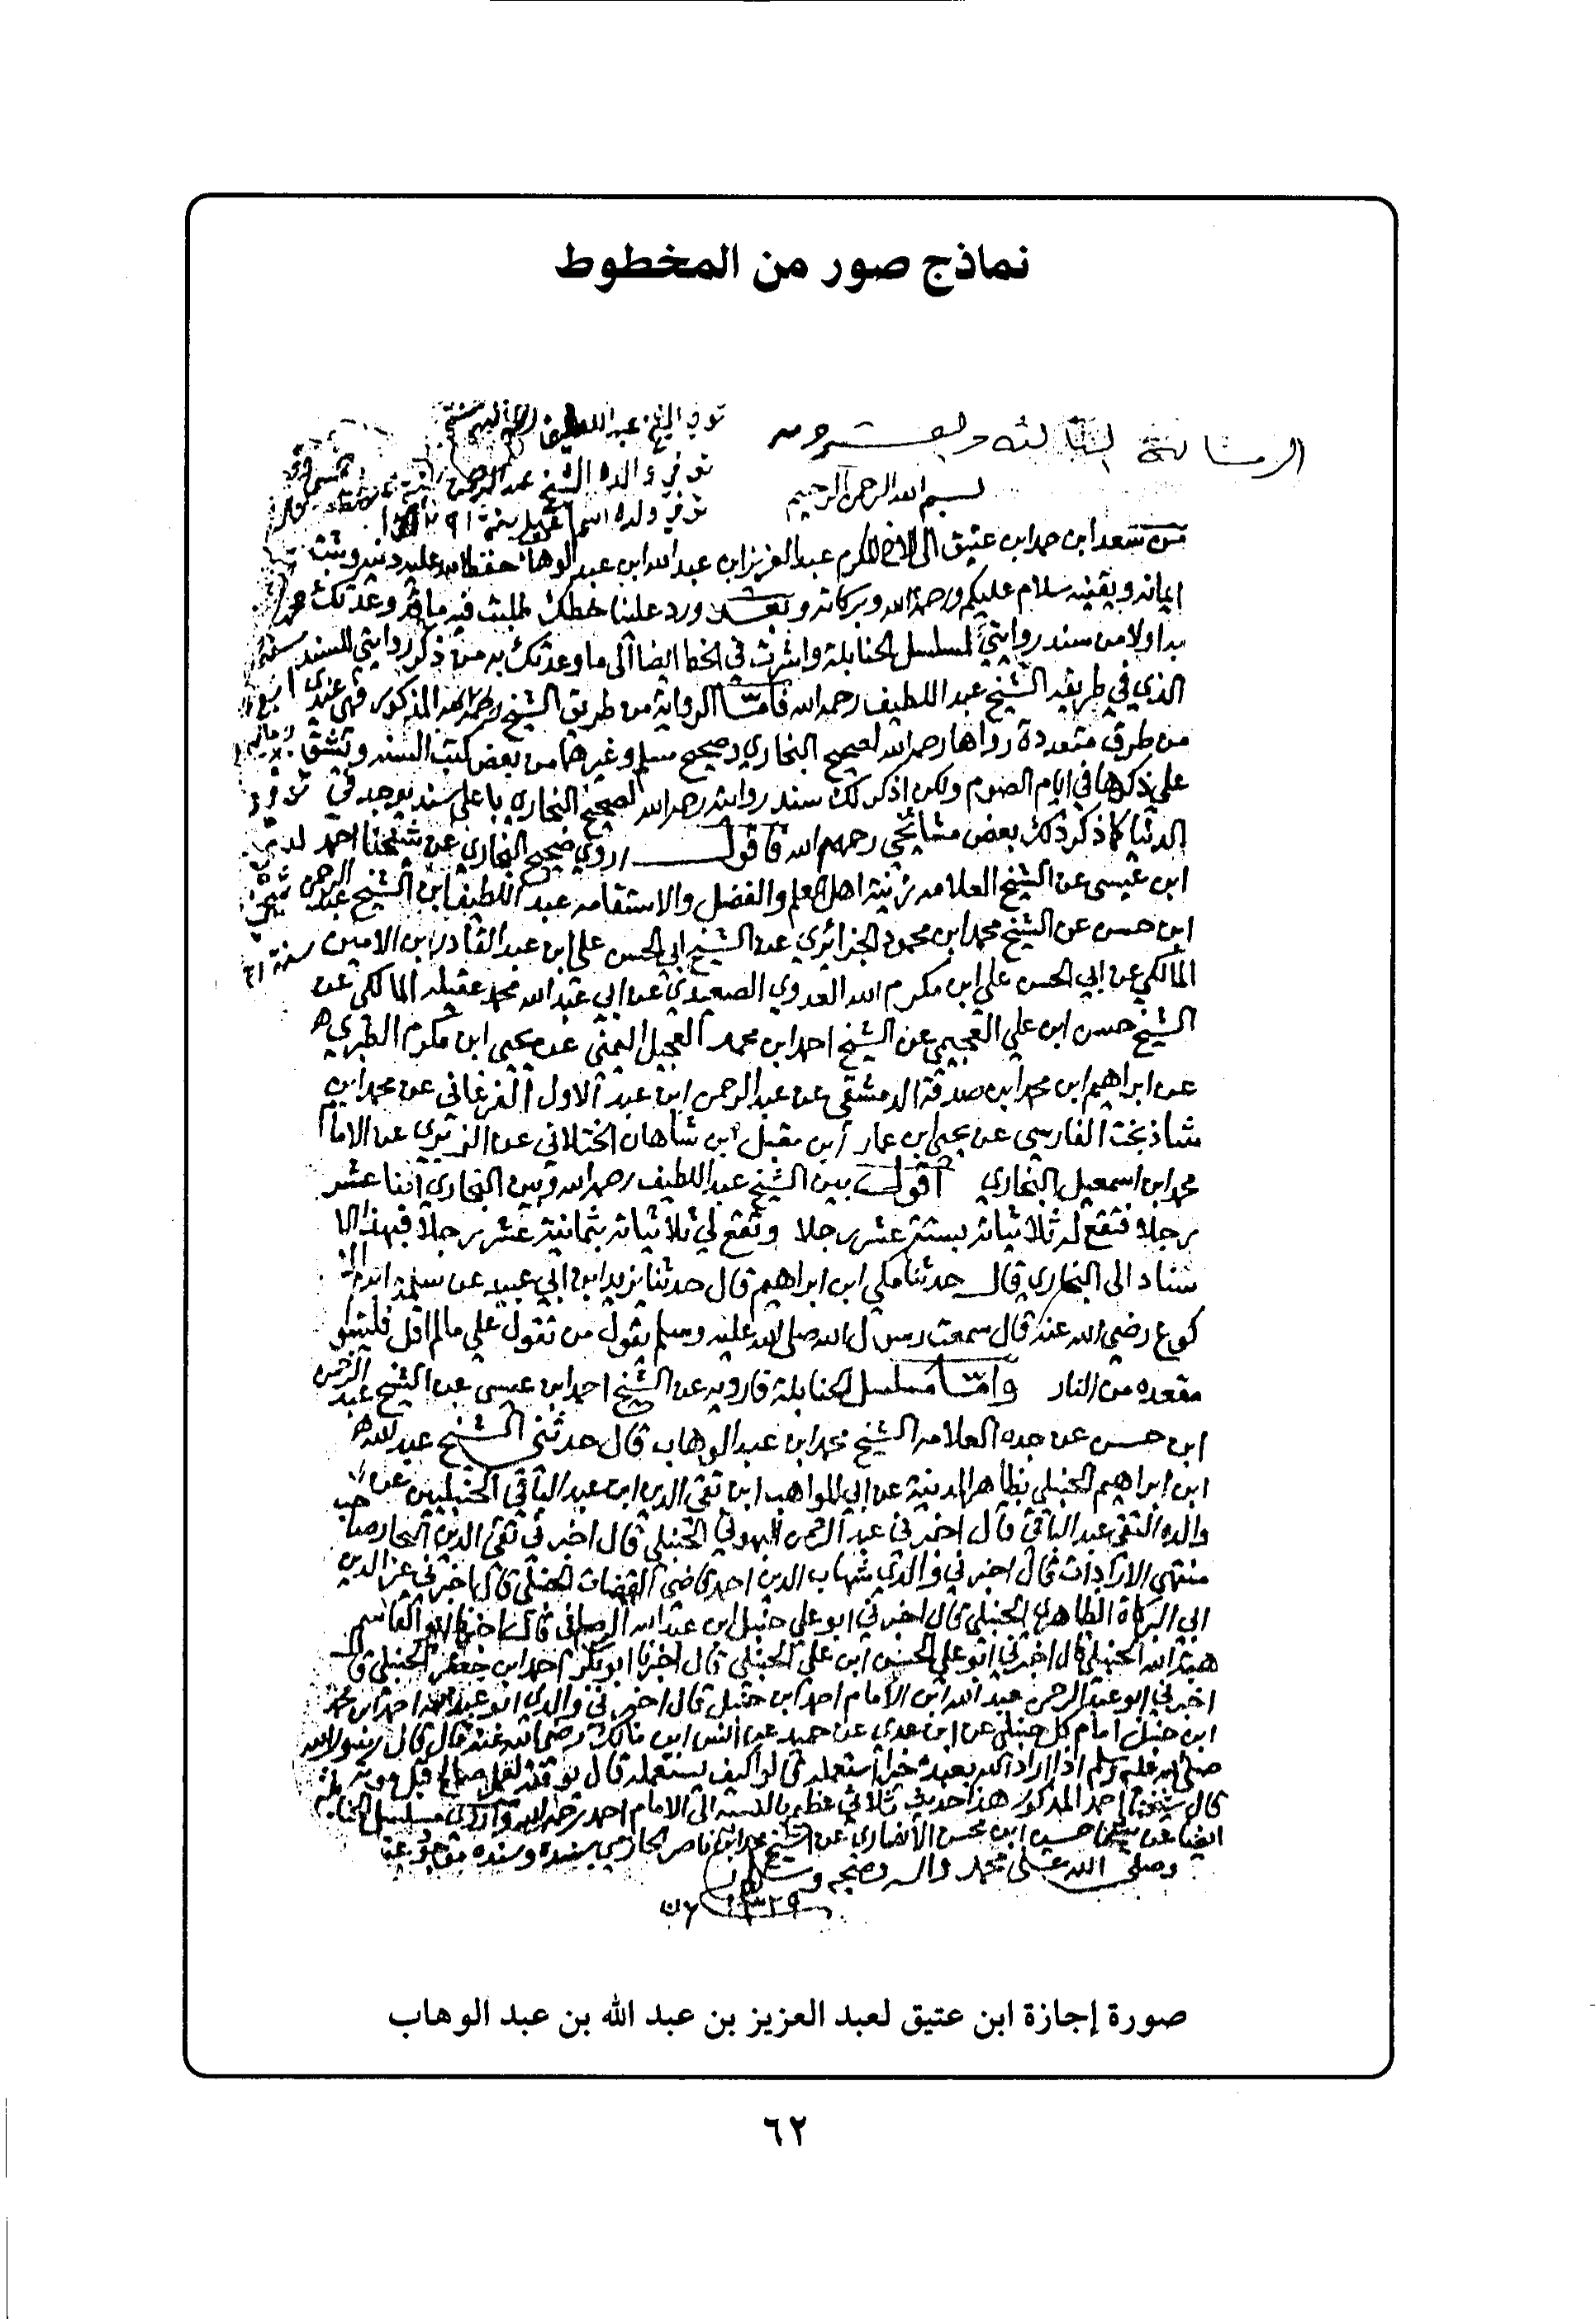 نماذج صور من المخطوط
الرسالة الثالثة والعشرون
توفي الشيخ عبد اللطيف
توفي والده الشيخ عبد الرحمن
توفي ولده
بسم الله الرحمن الرحيم
من سعد ابن حمد ابن عتيق الى الاخ المكرم عبد العزيز ابن عبد الله ابن عبد الوهاب حفظ الله عليه دينه وثبت
ايمانه ويقينه سلام عليكم ورحمة الله وبركاته وبعد ورد علينا خطك طلبت فيه ما وعدتك
به اولا من سند روايتي لمسلسل الحنابلة واشرت في الخط ايضا الى ما وعدتك به من ذكر روايتي للسند
الذي في طريقه الشيخ عبد اللطيف رحمه الله فامّا الرواية من طريق الشيخ رحمه الله المذكور فهي عندي
من طرق متعددة رواها رحمه الله لصحيح البخاري وصحيح مسلم وغيرهما من بعض كتب السنه وتشق
علي ذكرها في ايام الصوم ولكن اذكر لك سند روايته رحمه الله لصحيح البخاري با على سند يوجد في
الدنيا كما ذكر ذلك بعض مشائخي رحمهم الله فاقول اروي صحيح البخاري عن شيخنا احمد
ابن عيسى عن الشيخ العلامه زينة اهل العلم والفضل والاستقامه عبد اللطيف ابن الشيخ عبد الرحمن
ابن حسن عن الشيخ محمد ابن محمود الجزائري عن الشيخ ابي الحسن علي ابن عبد القادر ابن الامين
المالكي عن ابي الحسن علي ابن مكرم الله العدوي الصعيدي عن ابي عبد الله محمد عقيله المالكي عن
الشيخ حسن ابن علي العجيمي عن الشيخ احمد ابن محمد العجيل اليمني عن يحيى ابن مكرم الطبري
عن ابراهيم ابن محمد ابن صدقة الدمشقي عن عبد الرحمن ابن عبد الاول الفرغاني عن محمد ابن
شاذ بخت الفارسي عن يحيى ابن عمار ابن مقبل ابن شاهان الختلاني عن الفربري عن الامام
محمد ابن اسمعيل البخاري اقول بين الشيخ عبد اللطيف رحمه الله وبين البخاري اثنا عشر
رجلا فتقع له ثلاثياته بستة عشر رجلا وتقع لي ثلاثياته بثمانية عشر رجلا فبهذا الا
سناد الى البخاري قال حدثنا مكي ابن ابراهيم قال حدثنا يزيد ابن ابي عبيد عن سلمة ابن الا
كوع رضي الله عنه قال سمعت رسول الله صلى الله عليه وسلم يقول من تقول علي مالم اقل فليتبو
مقعده من النار وامّا مسلسل الحنابلة فارويه عن الشيخ احمد ابن عيسى عن الشيخ عبد الرحمن
ابن حسن عن جده العلامه الشيخ محمد ابن عبد الوهاب قال حدثني الشيخ عبد الله
ابن ابراهيم الحنبلي بظاهر المدينة عن ابي المواهب ابن تقي الدين ابن عبد الباقي الحنبليين عن
والده التقي عبد الباقي قال اخبرني عبد الرحمن البهوتي الحنبلي قال اخبرني تقي الدين النجار صاحب
منتهى الارادات قال اخبرني والدي شهاب الدين احمد قاضي القضات الحنبلي قال اخبرني عز الدين
ابي البركاة الطاهر الحنبلي قال اخبرني ابو علي حنبل ابن عبد الله الرصافي قال اخبرنا ابو القاسم
هبة الله الحنبلي قال اخبرني ابو علي الحسن ابن علي الحنبلي قال اخبرنا ابو بكر احمد ابن جعفر الحنبلي قال
اخبرني ابو عبد الرحمن عبد الله ابن الامام احمد ابن حنبل قال اخبرني والدي ابو عبد الله احمد ابن محمد
ابن حنبل امام كل حنبلي عن ابن عدي عن حميد عن انس ابن مالك رضي الله عنه قال قال رسول الله
صلى الله عليه وسلم اذا اراد الله بعبده خيرا استعمله قالوا كيف يستعمله قال يوفقه لعمل صالح قبل موته
قال شيخنا احمد المذكور هذا حديث ثلاثي عظيم بالنسبة الى الامام احمد رحمه الله وأروي مسلسل الحنابلة
ايضا عن شيخنا حسين ابن محسن الأنصاري عن الشيخ محمد ابن ناصر الحازمي بسنده وسنده موجود عندنا
وصلى الله على محمد واله وصحبه وسلم
١٣٢٩
صورة إجازة ابن عتيق لعبد العزيز بن عبد الله بن عبد الوهاب
٦٢